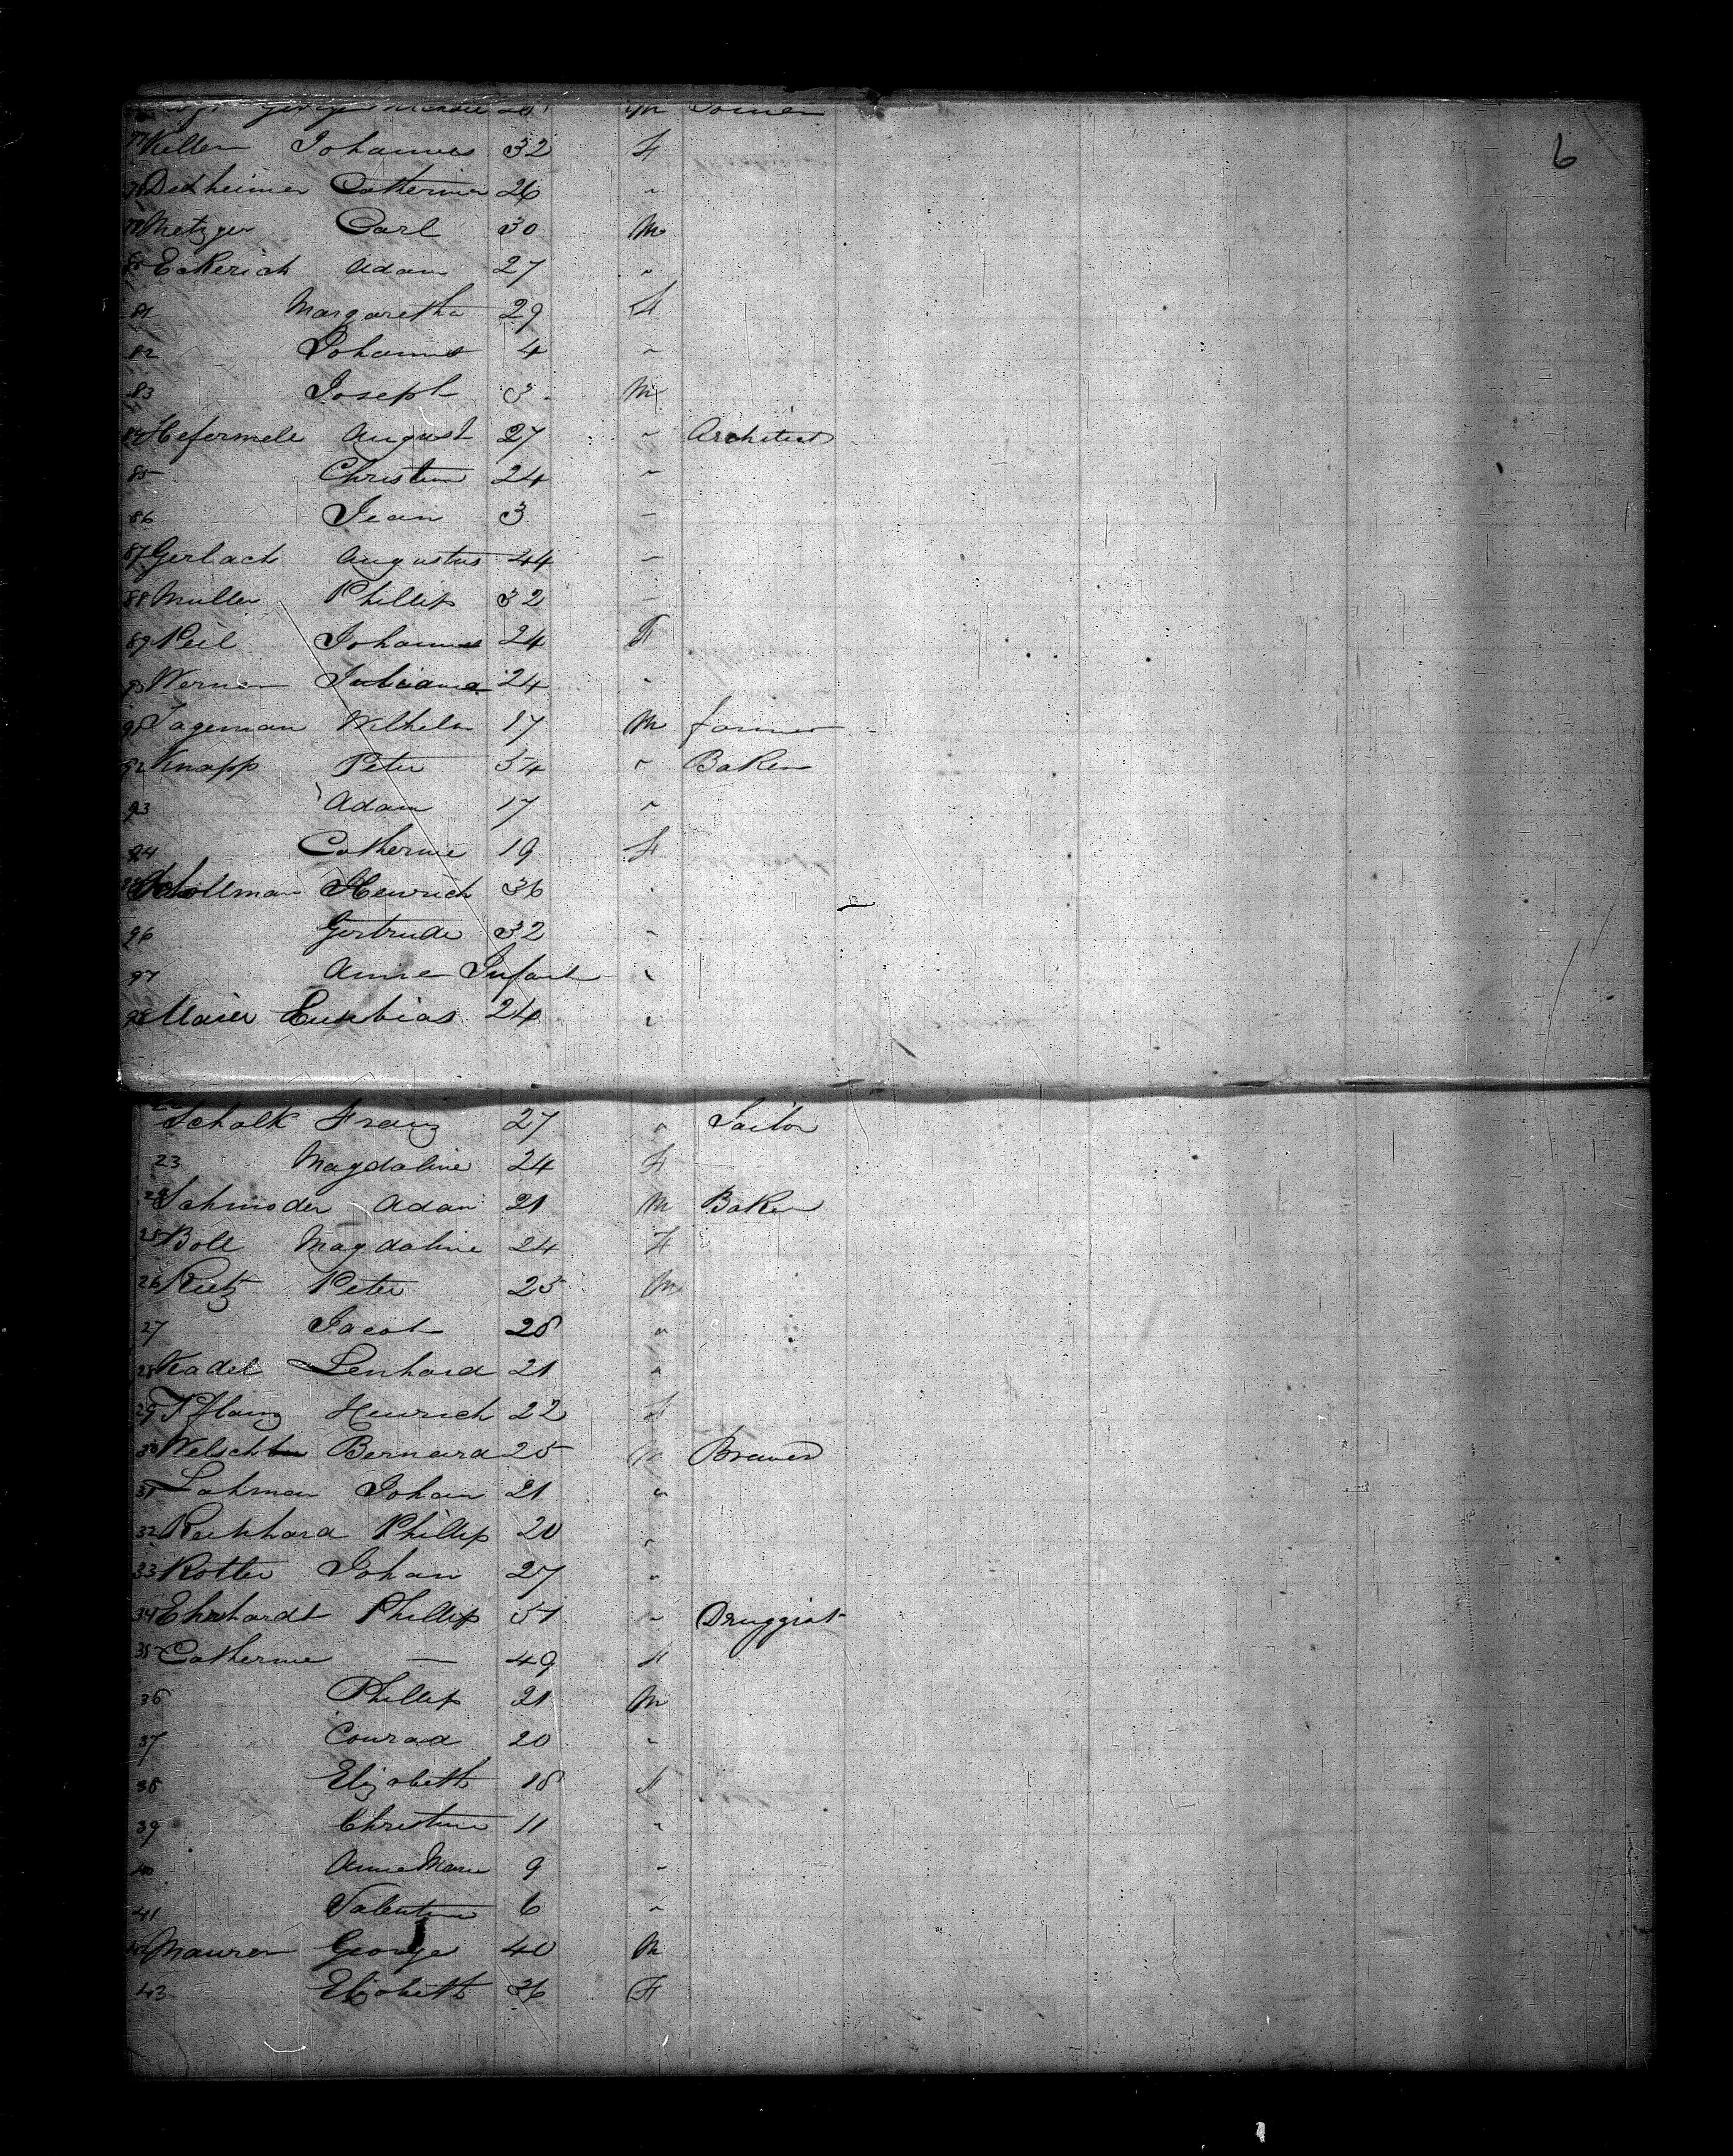 6
77 Keller Johannes 32 F
78 Dexheimer Catherine 26 "
79 Metzger Carl 30 M
80 Eckerich Adam 27 "
81 Margaretha 29 F
82 Johannes 4 "
83 Joseph 3 M
84 Hefermele August 27 " Architect
85 Christian 24 "
86 Jean 3 "
87 Gerlach Augustus 44 "
88 Muller Phillip 32 "
89 Peil Johannes 24 F
90 Werner Juliana 24 "
91 Jageman Wilhelm 17 M farmer
92 Knapp Peter 54 " Baker
93 Adam 17 "
94 Catherine 19 F
95 Schollman Heinrich 36 "
96 Gertrude 32 "
97 Anna Infant "
98 Maier Eusebias 24 "
Schalk Franz 27 " Tailor
23 Magdaline 24 F
24 Schnioder Adam 21 M Baker
25 Boll Magdaline 24 F
26 Rietz Peter 25 M
27 Jacob 28 "
28 Kadel Lenhard 21 "
29 Pflanz Heinrich 22 F
30 Welsch Bernard 25 M Brewer
31 Lahman Johan 21 "
32 Phillip 20 "
33 Rotter Johan 27 "
34 Ehrhardt Phillip 51 " Druggist
35 Catherine — 49 F
36 Phillip 21 M
37 Conrad 20 "
38 Elizabeth 18 F
39 Christine 11 "
40 Anna Marie 9 "
41 Valentine 6 "
42 Maurer George 40 M
43 Elizabeth 36 F